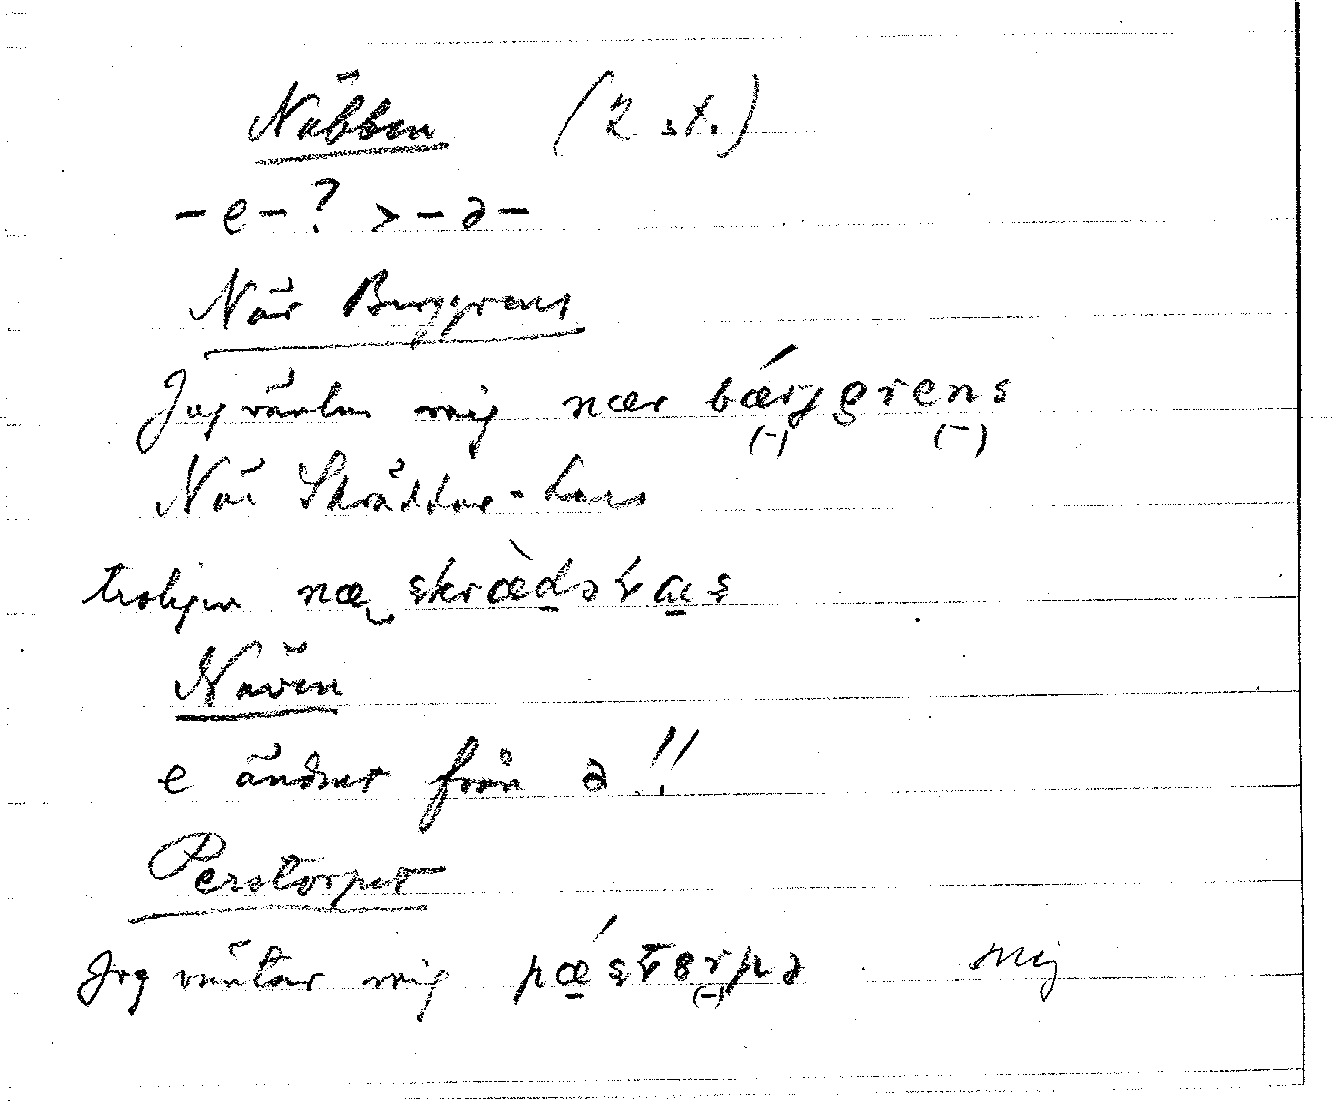 Näbben (2 st.)
-e-? > -ə-
När Berggrens
Jag väntar mig nær bǽrjgrens
När Skräddar-Lars
troligen næ skrædə
Näven
e ändrat från ə !!
Perstorpet
Jag väntar mig nej